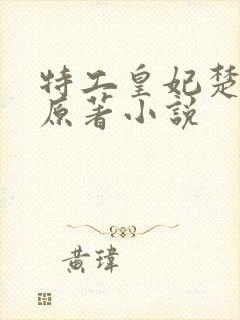 特工皇妃楚
原著小説
黃瑋